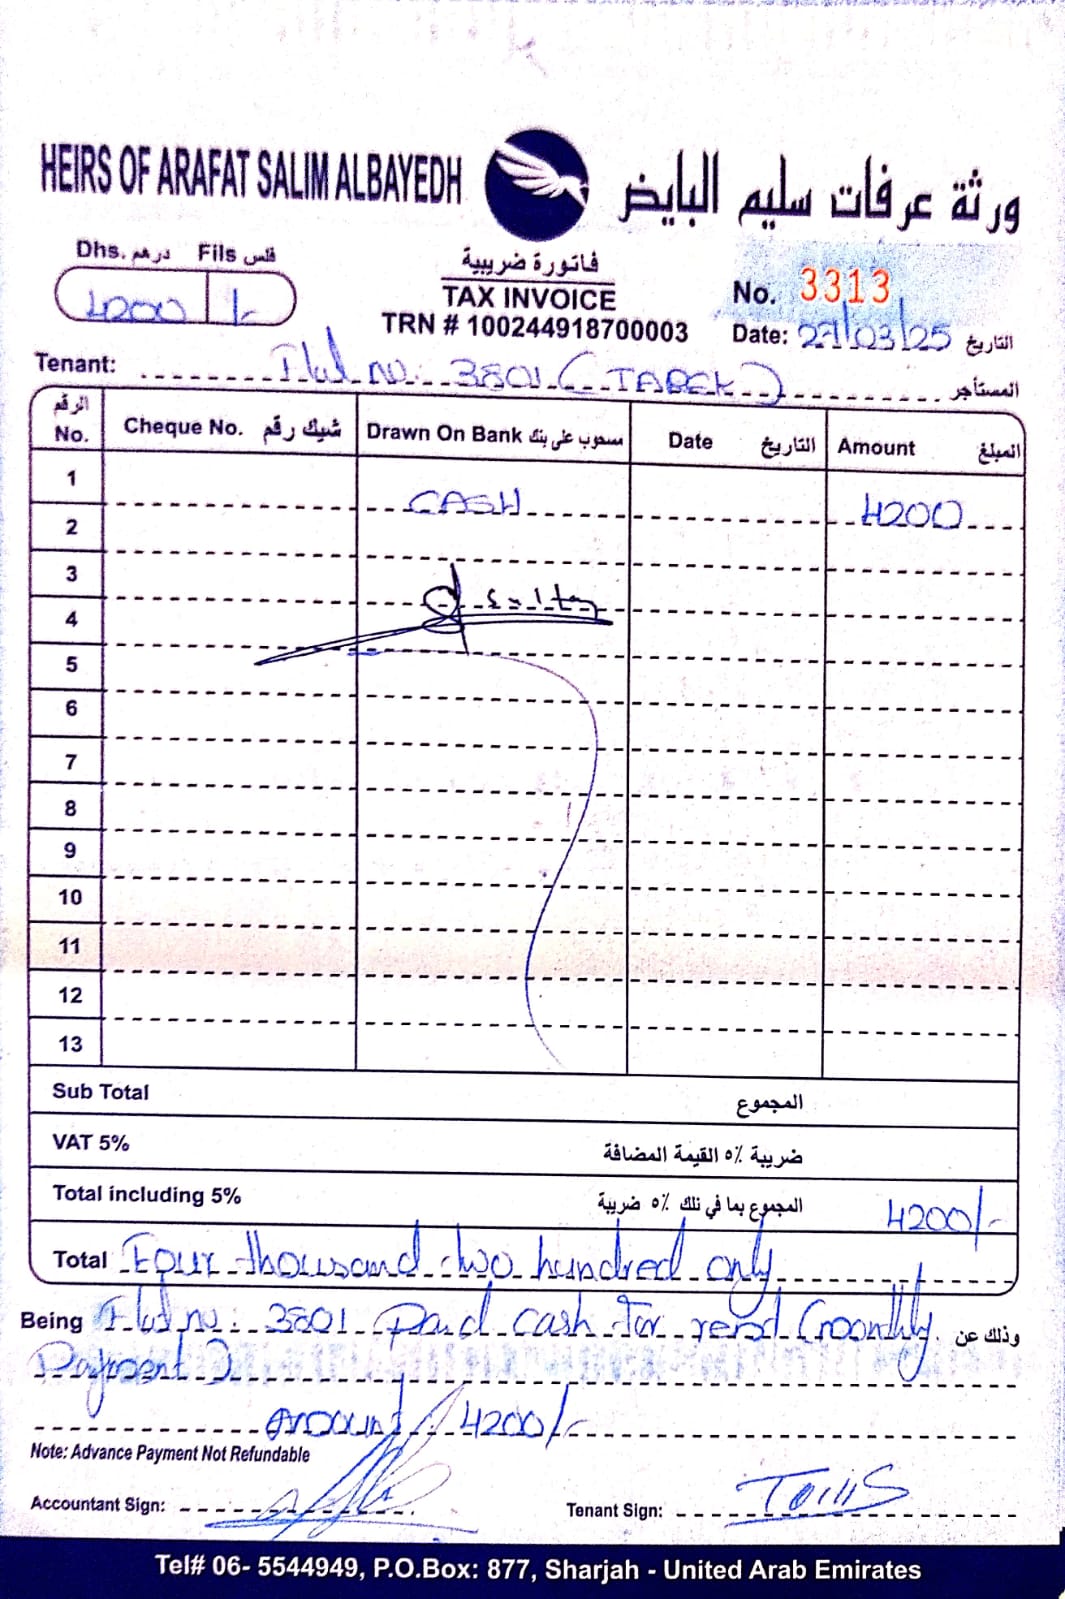 HEIRS OF ARAFAT SALIM ALBAYEDH
ورثة عرفات سليم البايض
Dhs. درهم Fils فلس
4200 /-
فاتورة ضريبية
TAX INVOICE
TRN # 100244918700003
No. 3313
Date: 27/03/25 التاريخ
Tenant: Flat no: 3801 (TAREK) المستأجر
الرقم No. Cheque No. شيك رقم Drawn On Bank مسحوب على بنك Date التاريخ Amount المبلغ
1
CASH 4200
2
3
4
5
6
7
8
9
10
11
12
13
Sub Total المجموع
VAT 5% ضريبة ٥٪ القيمة المضافة
Total including 5% المجموع بما في ذلك ٥٪ ضريبة 4200/-
Total Four thousand two hundred only
Being Flat no: 3801 Paid cash for rent (monthly وذلك عن
Payment)
Amount: 4200/-
Note: Advance Payment Not Refundable
Accountant Sign:
Tenant Sign:
Tel# 06- 5544949, P.O.Box: 877, Sharjah - United Arab Emirates